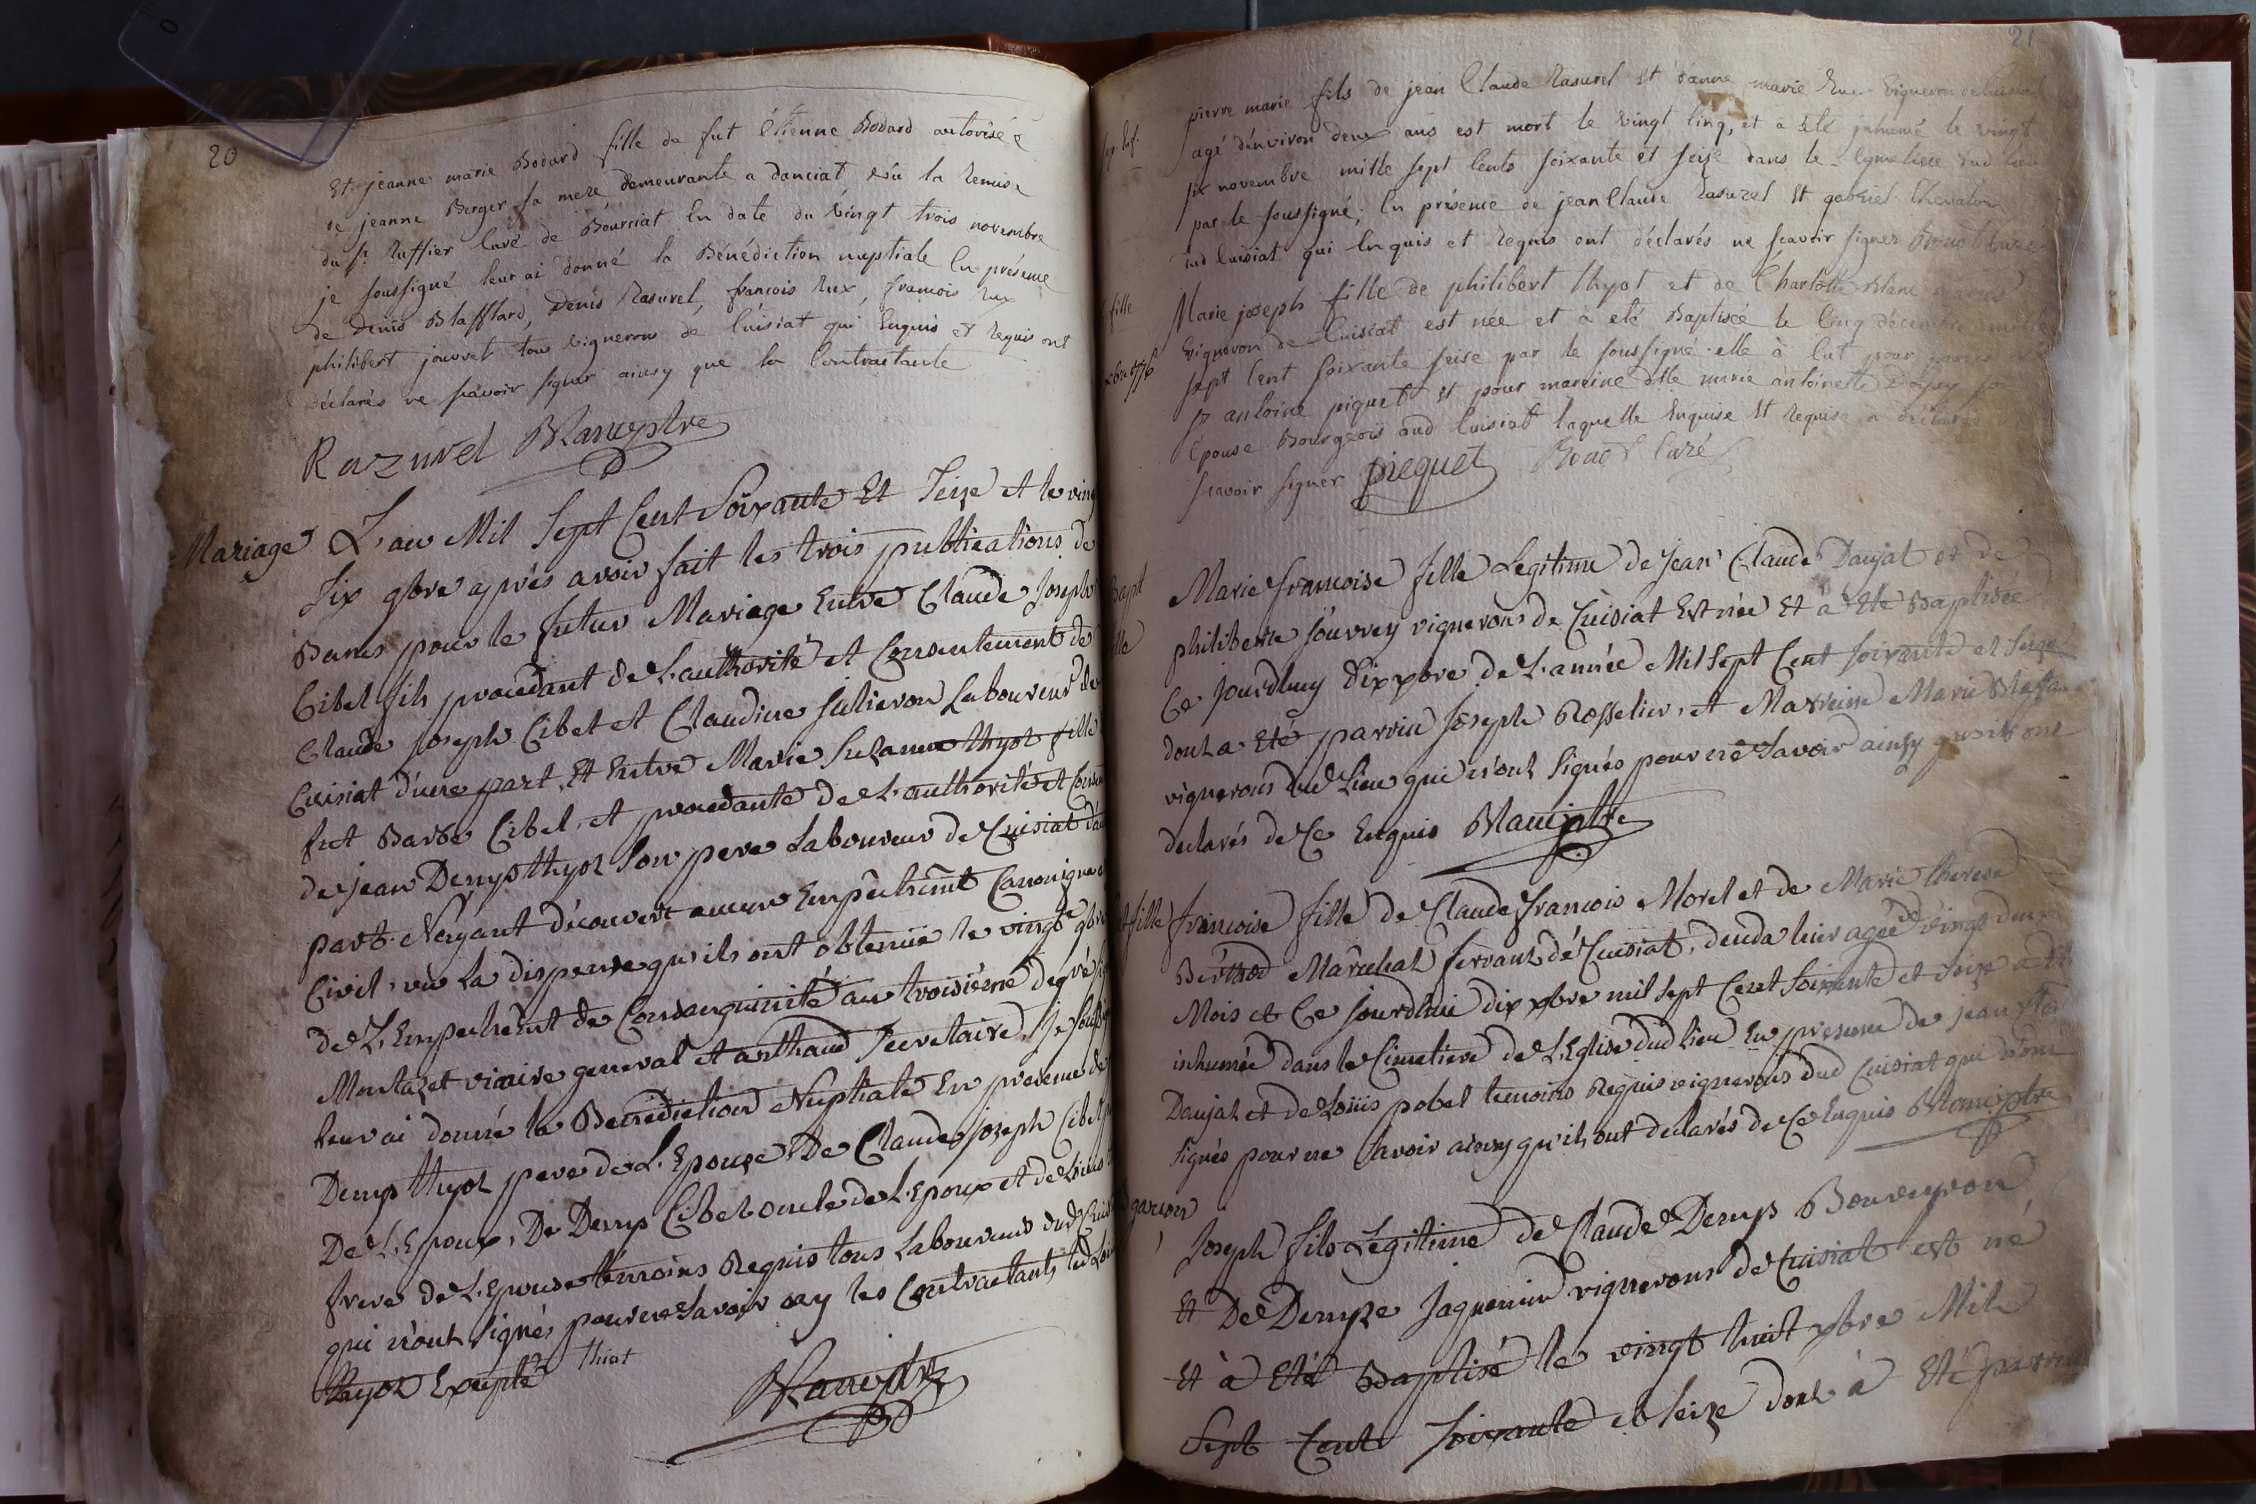 20
Et jeanne marie Bodard fille de fut Étienne Bodard autorisée
de jeanne Berger sa mere demeurante a danciat vû la Remise
du Sr Ruffier Curé de Bourciat En date du vingt trois novembre
je soussigné leur ai donné la Bénédiction nuptiale En présence
de denis Blafflard, denis Rasurel, francois Rux, francois Rux
philibert jouvret tous vignerons de Cuisiat qui Enquis et Requis ont
déclarés ne sçavoir signer ainsy que la Contractante
Razurel Blancystre
Mariage L'an Mil Sept Cent Soixante Et Seize et le vingt
Six 9bre après avoir fait les trois publications de
Bans pour le futur Mariage Entre Claude Joseph
Cibel fils procedant de L'authorité et Consentement de
Claude Joseph Cibet et Claudine Julieron Laboureur de
Cuisiat d'une part, Et Entre Marie Suzanne thyot fille
fut Barbe Cibel, et procedante de L'authorité et
de jean Denys thyot Son pere Laboureur de Cuisiat
part. N'ayant découvert aucun Empêchemt Canonique
Civil, vu La dispense qu'ils ont obtenüe le vingt 9bre
de L'Empechemt de Consanguinité au troisième degré
Montazet vicaire general et arthaud Secretaire, Je
leur ai donné la Benediction Nuptiale En presence de
Denys thyot pere de L'Epouse De Claude Joseph Cibel
De L'Epoux, De Denys Cibel oncle de L'Epoux et de Loüis
frere de L'Epouse témoins Requis tous Laboureurs dud
qui n'ont signés pour ne Savoir ny les Contractants
thyot Excepté thiot
Blancystre
21
pierre marie fils de jean Claude Rasurel et danne marie Rux vigneron de
agé denviron deux ans est mort le vingt Cinq, et a été inhumé le vingt
six novembre mille sept Cents soixante et seize dans le Cymetiere dud lieu
par le soussigné; En présence de jean Claude Rasurel Et gabriel Chevalon
dud Cuisiat qui Enquis et Requis ont déclarés ne scavoir signer
fille Marie joseph fille de philibert thyot et de Charlotte Blanc
Vigneron de Cuisiat est née et à eté Baptisée le Cinq décembre mille
sept Cent soixante seize par le soussigné elle à Eut pour
Sr antoine piquet et pour mareine dlle marie antoinette
Épouse Bourgeois dud Cuisiat laquelle Enquise Et Requise a
scavoir signer piequet Curé
Marie francoise fille Legitime de Jean Claude Daujat et de
philiberte jouvrey vignerons de Cuisiat Est née Et a Eté Baptisée
Ce jourdhuy Dix xbre de L'année Mil Sept Cent soixante et Seize
dont a Eté parrin Joseph Rosselier, et Marreine Marie
vignerons dud Lieu qui n'ont Signés pour ne Savoir ainsy qu'ils ont
declarés de Ce Enquis Blancystre
fille francoise fille de Claude francois Morel et de Marie therese
Berthod Maréchal ferrant de Cuisiat, décéda hier agée de vingt deux
Mois et Ce jourdhui dix xbre mil sept Cent Soixante et Seize a été
inhumée dans le Cimetiere de L'Eglise dud lieu En presence de jean
Daujat et de Loüis pobel temoins Requis vignerons dud Cuisiat qui n'ont
signés pour ne Savoir ainsy qu'ils ont declarés de Ce Enquis Blancystre
garcon
Joseph fils Légitime de Claude Denys Bouveyron
Et De Denyze Jaquemin vignerons de Cuisiat est né
Et à Eté Baptisé le vingt huit xbre Mil
Sept Cent Soixante et Seize dont à Eté parrin